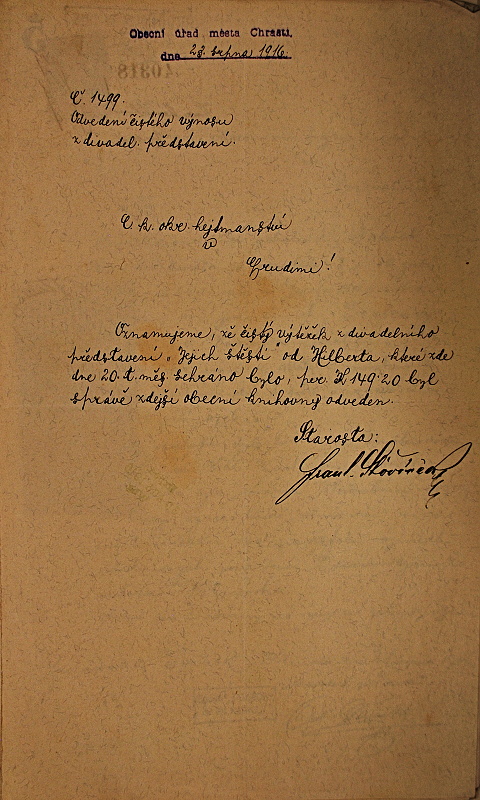 Obecní úřad města Chrasti,
dne 23. srpna 1916.
Č. 1499.
Odvedení čistého výnosu
z divadel. představení.
C. k. okr. hejtmanství
v
Chrudimi!
Oznamujeme, že čistý výtěžek z divadelního
představení „Jejich štěstí" od Hilberta, které zde
dne 20. t. měs. sehráno bylo, per K 149·20 byl
správě zdejší obecní knihovny odveden.
Starosta:
Frant.